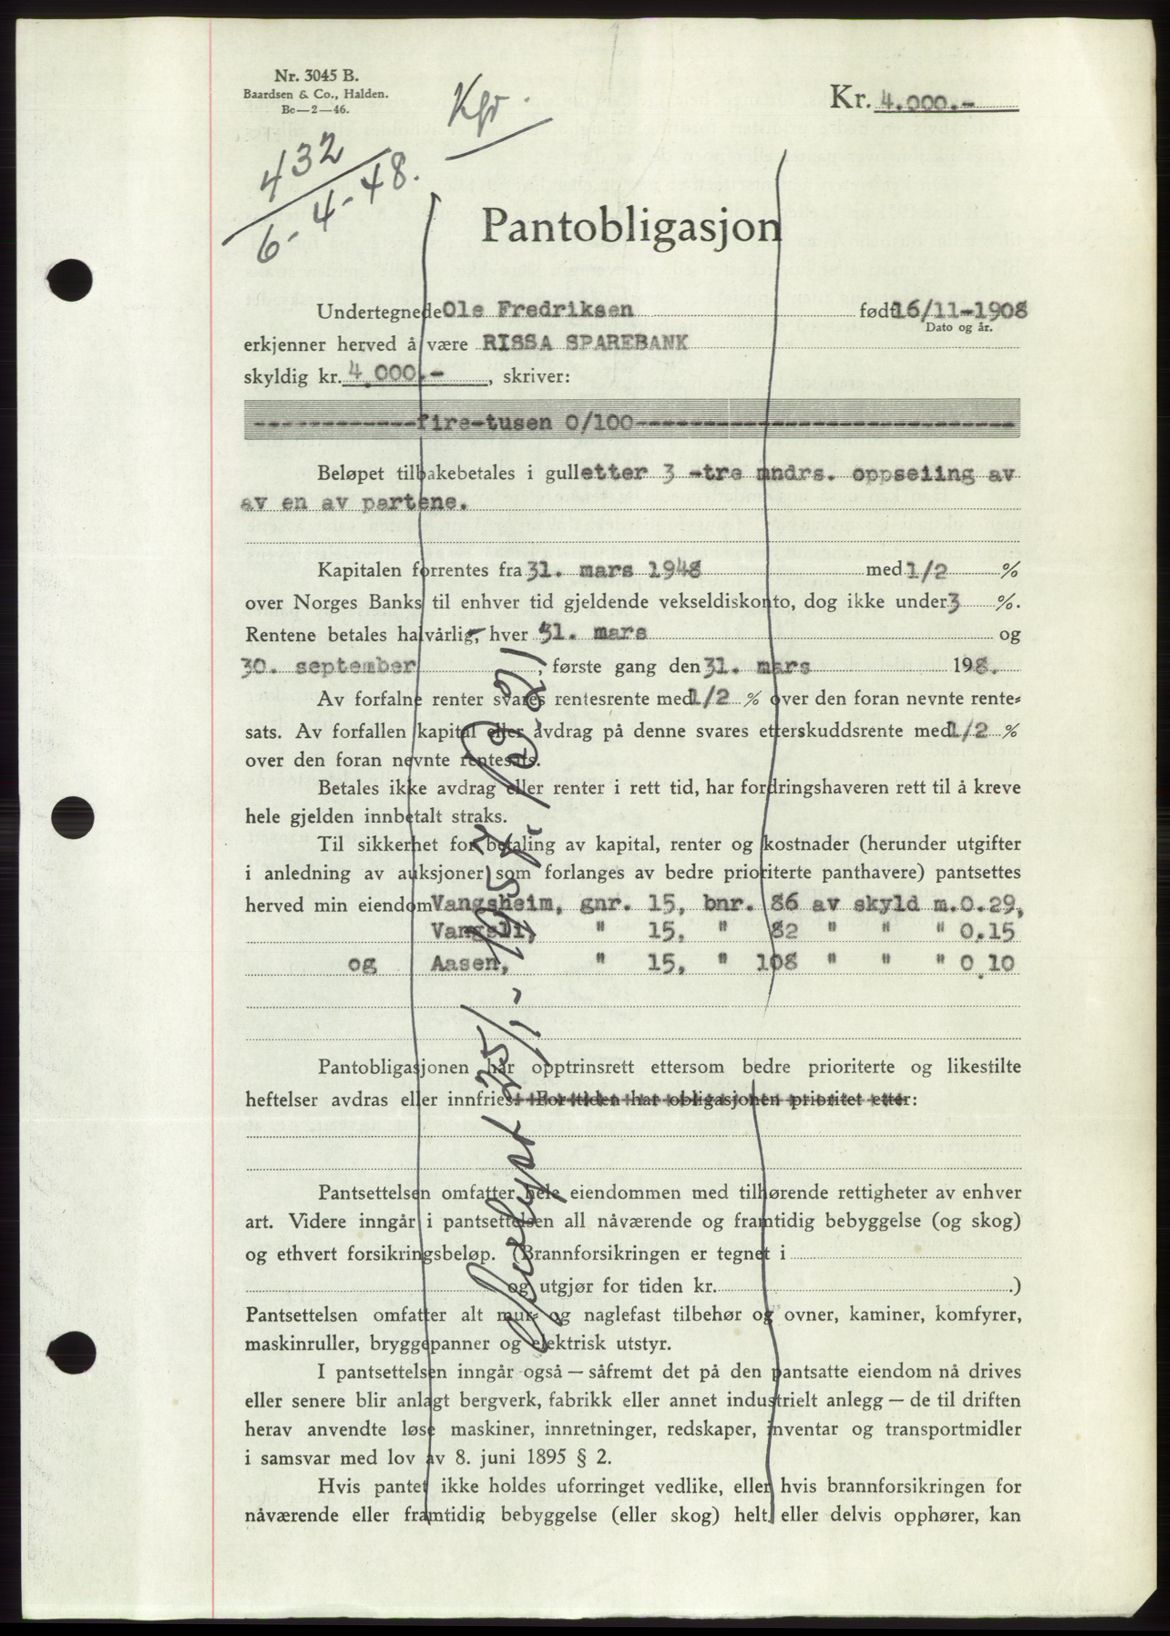 Nr. 3045 B.
Baardsen & Co., Halden.
Bc—2—46.
Kgr.
Kr. 4.000.-
432
6-4-48.
Pantobligasjon
Undertegnede Ole Fredriksen født 16/11-1908
Dato og år.
erkjenner herved å være RISSA SPAREBANK
skyldig kr. 4.000.-, skriver:
------------fire-tusen 0/100----------------------------
Beløpet tilbakebetales i gull etter 3 -tre mndrs. oppseiing av
av en av partene.
Kapitalen forrentes fra 31. mars 1948 med 1/2 %
over Norges Banks til enhver tid gjeldende vekseldiskonto, dog ikke under 3 %.
Rentene betales halvårlig, hver 31. mars og
30. september, første gang den 31. mars 198.
Av forfalne renter svares rentesrente med 1/2 % over den foran nevnte rente-
sats. Av forfallen kapital eller avdrag på denne svares etterskuddsrente med 1/2 %
over den foran nevnte rentesats.
Betales ikke avdrag eller renter i rett tid, har fordringshaveren rett til å kreve
hele gjelden innbetalt straks.
Til sikkerhet for betaling av kapital, renter og kostnader (herunder utgifter
i anledning av auksjoner som forlanges av bedre prioriterte panthavere) pantsettes
herved min eiendom Vangsheim, gnr. 15, bnr. 86 av skyld m.0.29,
Vangsli, " 15, " 82 " " " 0.15
og Aasen, " 15, " 108 " " " 0.10
Pantobligasjonen har opptrinsrett ettersom bedre prioriterte og likestilte
heftelser avdras eller innfries. For tiden har obligasjonen prioritet etter:
Pantsettelsen omfatter hele eiendommen med tilhørende rettigheter av enhver
art. Videre inngår i pantsettelsen all nåværende og framtidig bebyggelse (og skog)
og ethvert forsikringsbeløp. (Brannforsikringen er tegnet i
og utgjør for tiden kr. .)
Pantsettelsen omfatter alt mur- og naglefast tilbehør og ovner, kaminer, komfyrer,
maskinruller, bryggepanner og elektrisk utstyr.
I pantsettelsen inngår også — såfremt det på den pantsatte eiendom nå drives
eller senere blir anlagt bergverk, fabrikk eller annet industrielt anlegg — de til driften
herav anvendte løse maskiner, innretninger, redskaper, inventar og transportmidler
i samsvar med lov av 8. juni 1895 § 2.
Hvis pantet ikke holdes uforringet vedlike, eller hvis brannforsikringen for
nåværende eller framtidig bebyggelse (eller skog) helt eller delvis opphører, kan
Avlyst 25/1-1957.